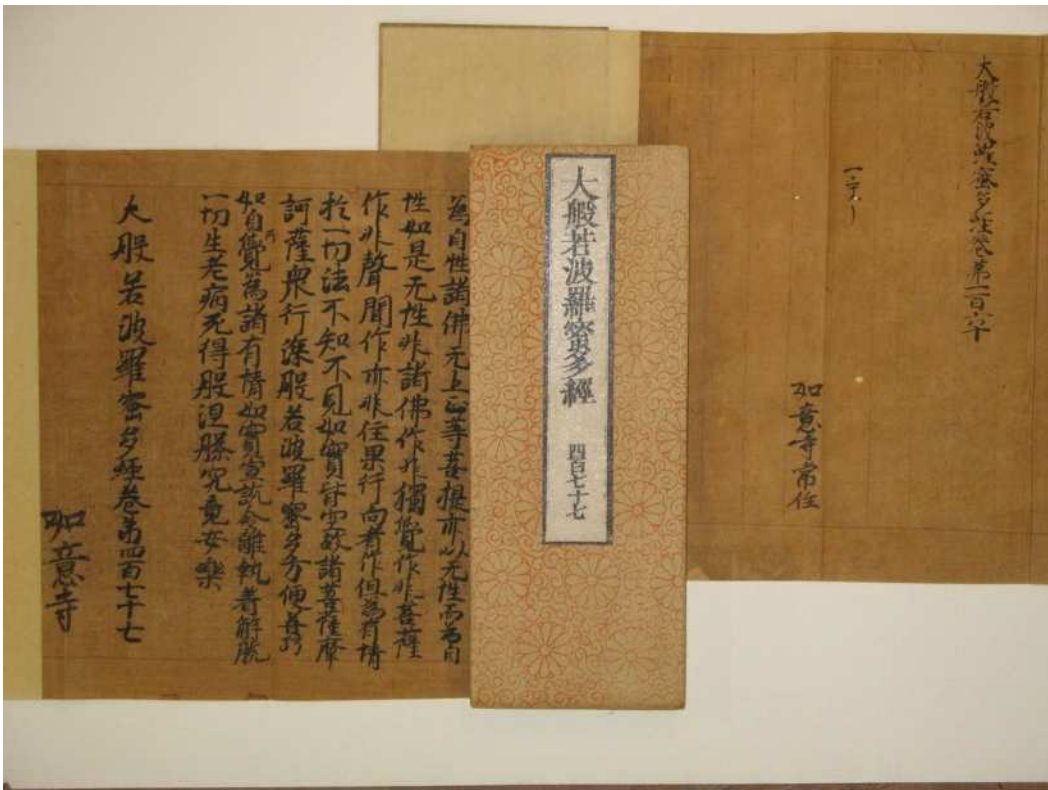 大般若波羅蜜多經卷第一百六十
如意寺常住
大般若波羅蜜多經
四百七十七
為自性諸佛无上正等菩提亦以无性而為自
性如是无性非諸佛作非獨覺作非菩薩
作非聲聞作亦非住果行向者作但為有情
於一切法不知不見如實皆空故諸菩薩摩
訶薩衆行深般若波羅蜜多方便善巧
如自所覺為諸有情如實宣說令離執著解脫
一切生老病死得般涅槃究竟安樂
大般若波羅蜜多經卷第四百七十七
如意寺